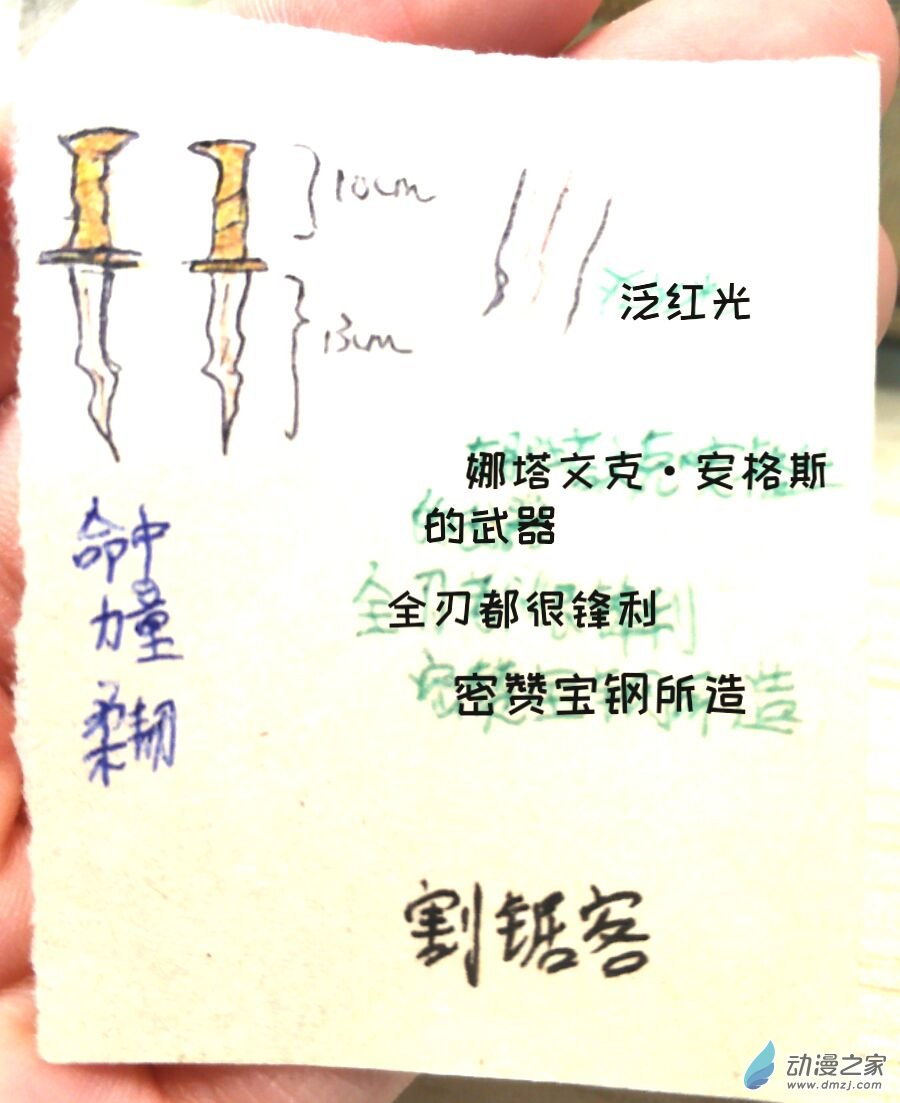 10cm
13cm
泛红光
娜塔文克·安格斯
的武器
全刃都很锋利
密赞宝钢所造
命中
力量
柔韧
割锯客
动漫之家
www.dmzj.com